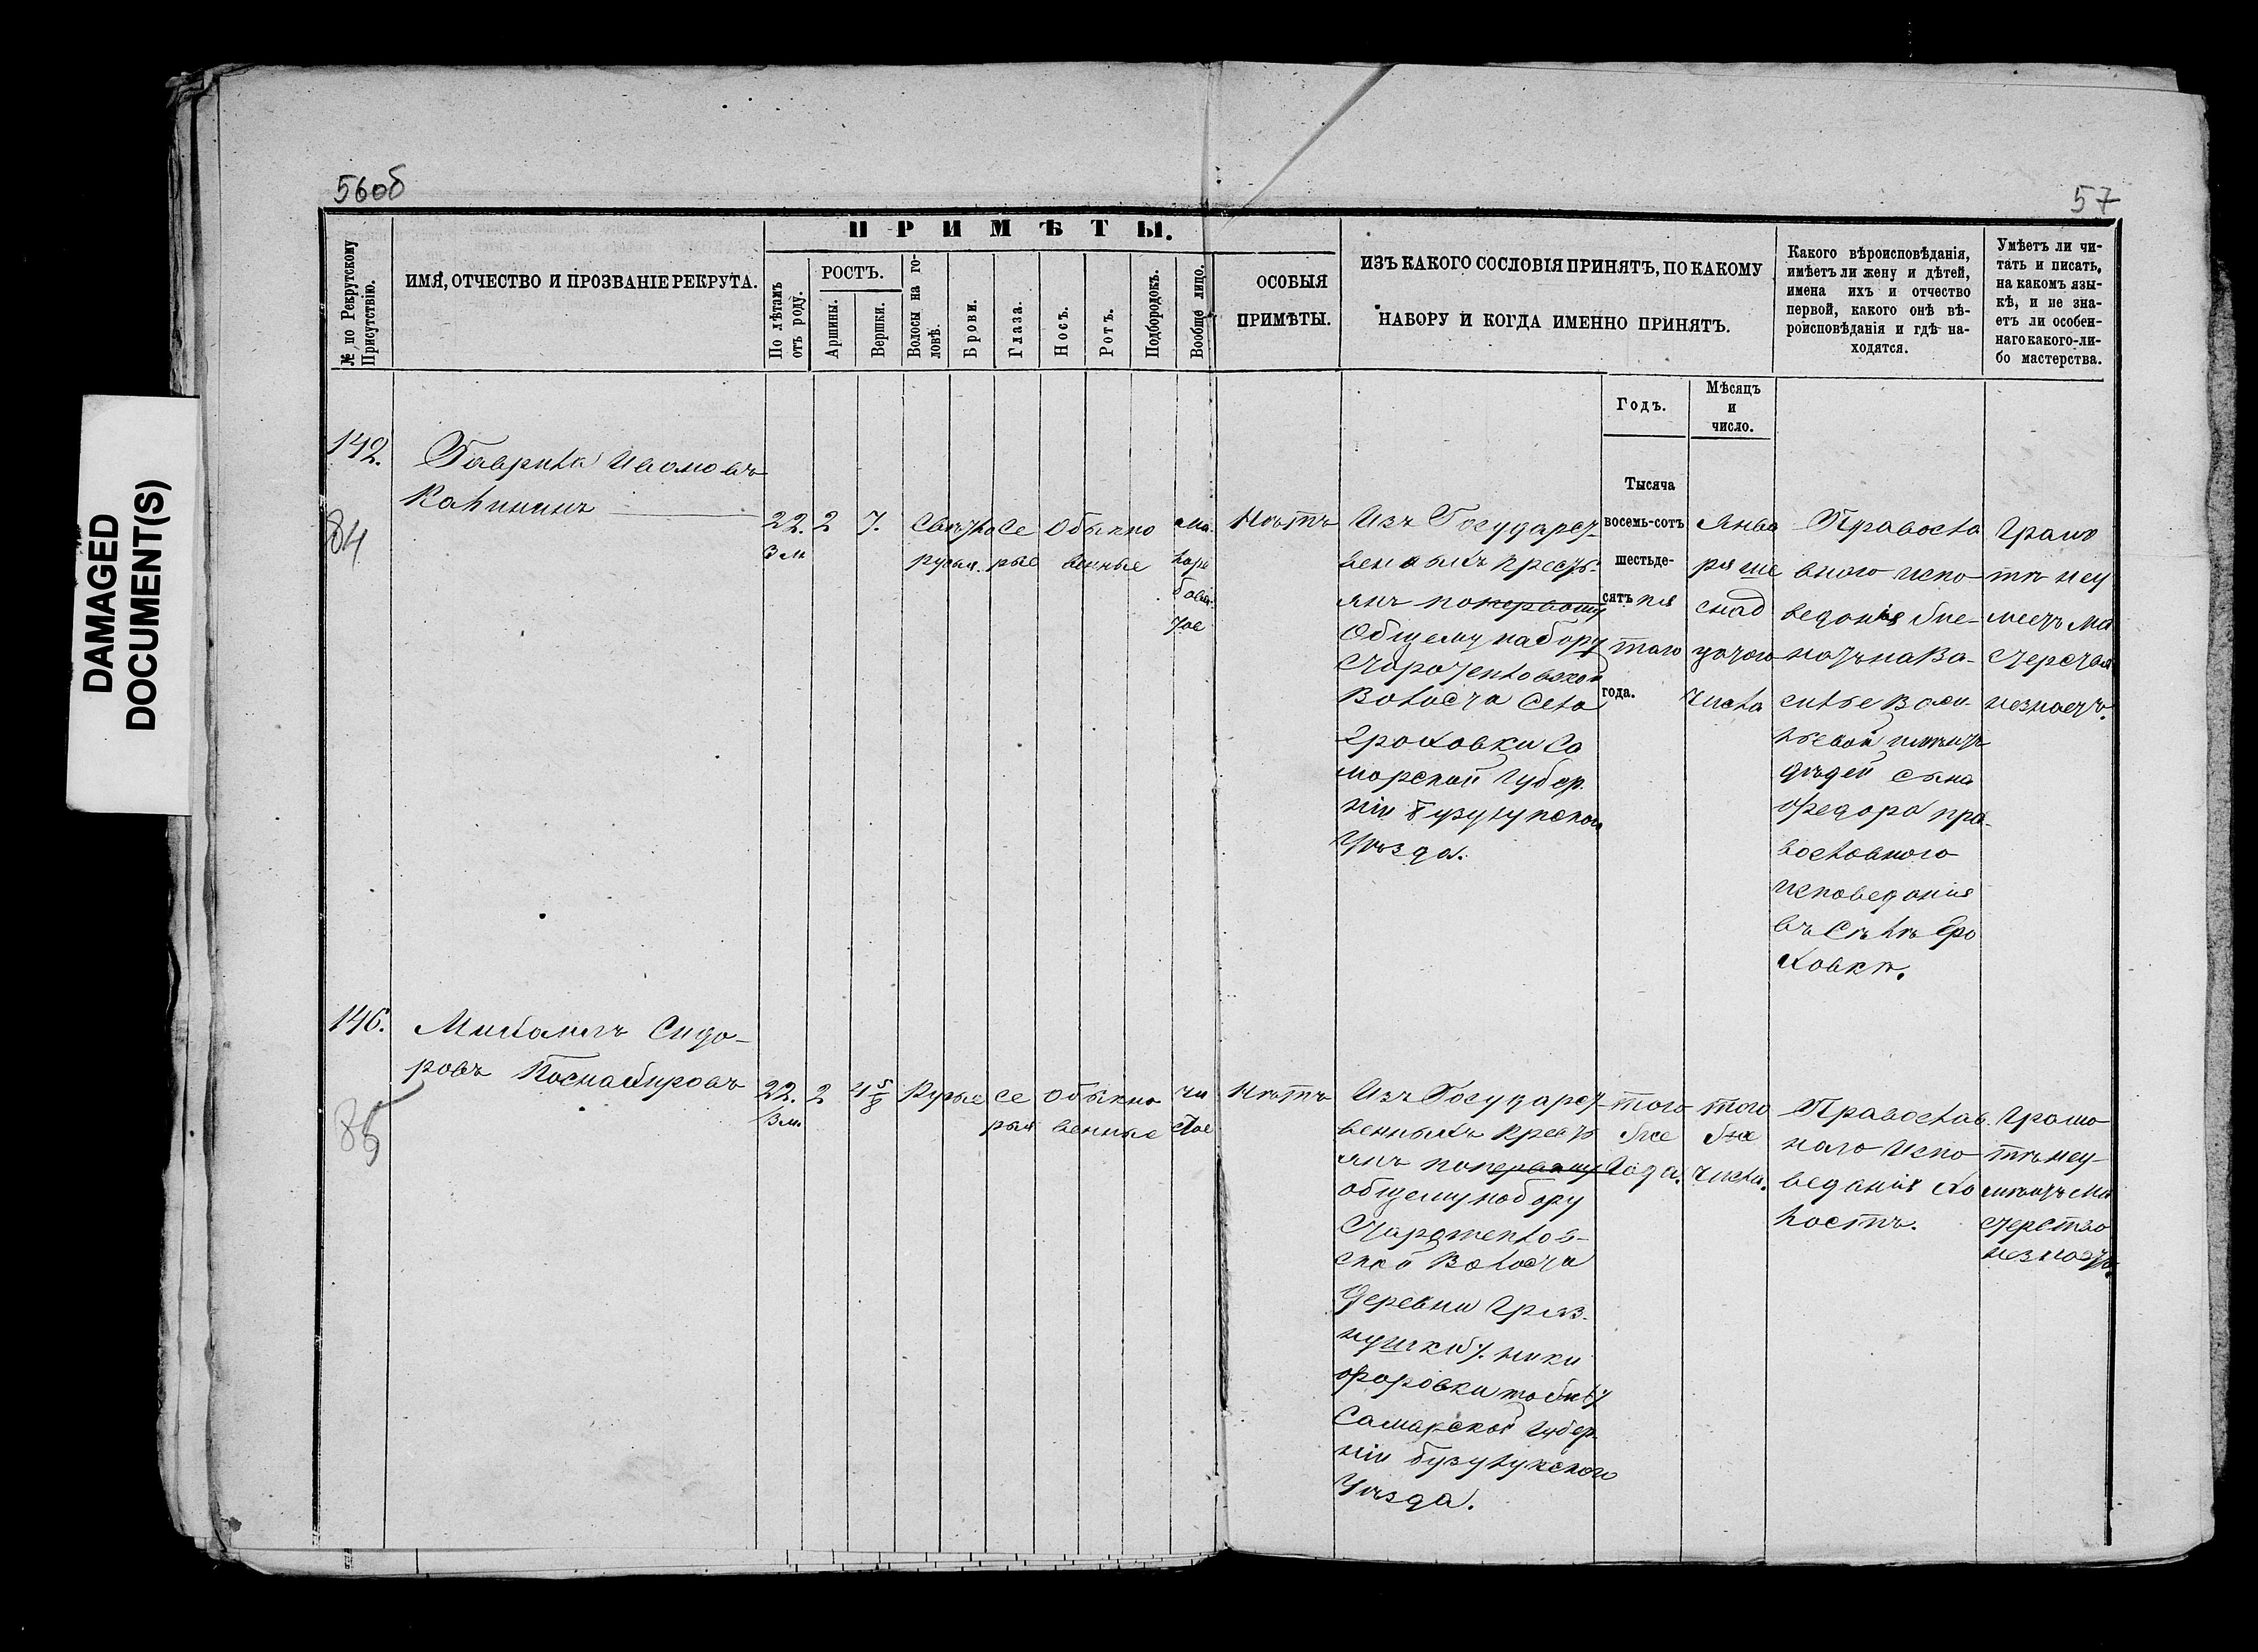 DAMAGED
DOCUMENT(S)
56об
57
ПРИМѢТЫ.
№ по Рекрутскому
Присутствію.
ИМЯ, ОТЧЕСТВО И ПРОЗВАНІЕ РЕКРУТА.
По лѣтамъ
отъ роду.
РОСТЪ.
Аршины.
Вершки.
Волосы на го-
ловѣ.
Брови.
Глаза.
Носъ.
Ротъ.
Подбородокъ.
Вообще лицо.
ОСОБЫЯ
ПРИМѢТЫ.
ИЗЪ КАКОГО СОСЛОВІЯ ПРИНЯТЪ, ПО КАКОМУ
НАБОРУ И КОГДА ИМЕННО ПРИНЯТЪ.
Годъ.
Мѣсяцъ
и
число.
Какого вѣроисповѣданія,
имѣетъ ли жену и дѣтей,
имена ихъ и отчество
первой, какого онѣ вѣ-
роисповѣданія и гдѣ на-
ходятся.
Умѣетъ ли чи-
тать и писать,
на какомъ язы-
кѣ, и не зна-
етъ ли особен-
наго какого-ли-
бо мастерства.
142.
84
Гаврила
Калининъ
22.
3 м
2
7.
Свѣтло
русыя.
Се
рые
Обыкно
венные
Нѣтъ
Изъ Государст-
венныхъ кресть-
янъ по первому
Общему набору
Волости Села
Ероховки Са
марской Губер.
ніи Бузулукскаго
Уѣзда.
Тысяча
восемь-сотъ
шестьде-
сятъ пя
таго
года.
Янва
ря ше
снад
цатого
Числа
Правосла
вного испо-
веданія же-
натъ на Ва-
силье Васи-
льевой имѣитъ
дѣтей сына
Федора пра-
вославного
исповедания
въ Селѣ Еро
ховкѣ.
Грамо
тѣ неу
меетъ Ма
стерства
незнаетъ.
146.
85
Михаилъ Сидо-
ровъ
22.
3 м
2
4 5/8
Русые
се
рыя
Обыкно
венные
чи
стое
Нѣтъ
Изъ Государст-
венныхъ кресть
янъ по первому
общему набору
Волости
Деревни Гряз-
нушки
форовки тожъ
Самарской Губер-
ніи Бузулукскаго
Уѣзда.
того
же
Года.
того
же
Числа.
Православ.
наго Испо
веданія хо
лостъ.
Грамо
тѣ неу-
мѣитъ Ма
стерство
незнаетъ.